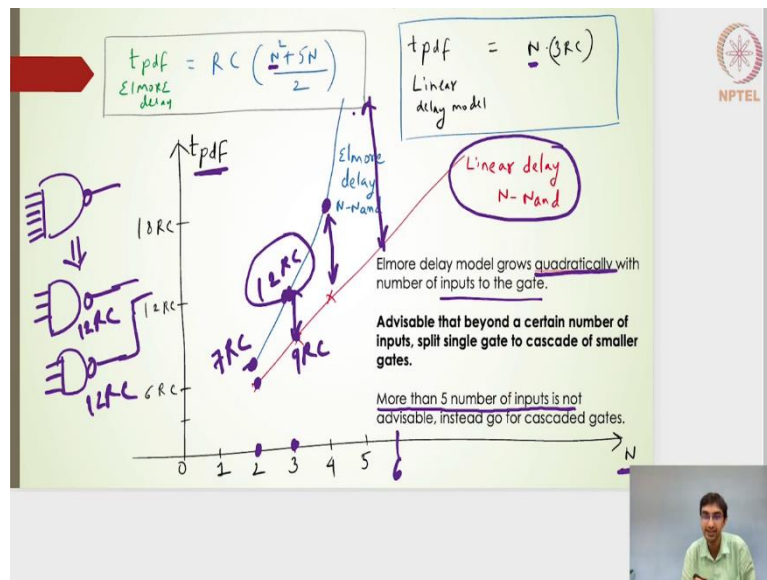 tpdf = RC (N²+5N / 2)
ELMORE
delay
tpdf = N·(3RC)
Linear
delay model
NPTEL
tpdf
Elmore
delay
N-Nand
Linear delay
N-Nand
18RC
12RC
12RC
6RC
7RC
9RC
12RC
12RC
Elmore delay model grows quadratically with
number of inputs to the gate.
Advisable that beyond a certain number of
inputs, split single gate to cascade of smaller
gates.
More than 5 number of inputs is not
advisable, instead go for cascaded gates.
0 1 2 3 4 5 6 N